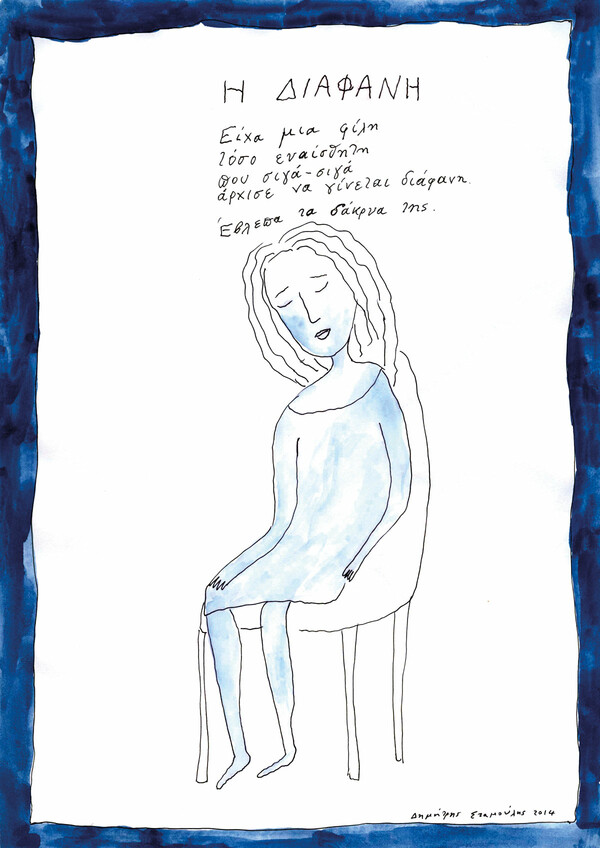 Η ΔΙΑΦΑΝΗ
Είχα μια φίλη
τόσο εναίσθητη
που σιγά-σιγά
άρχισε να γίνεται διάφανη.
Έβλεπα τα δάκρυα της.
Δημήτρης Σταμούλης 2014